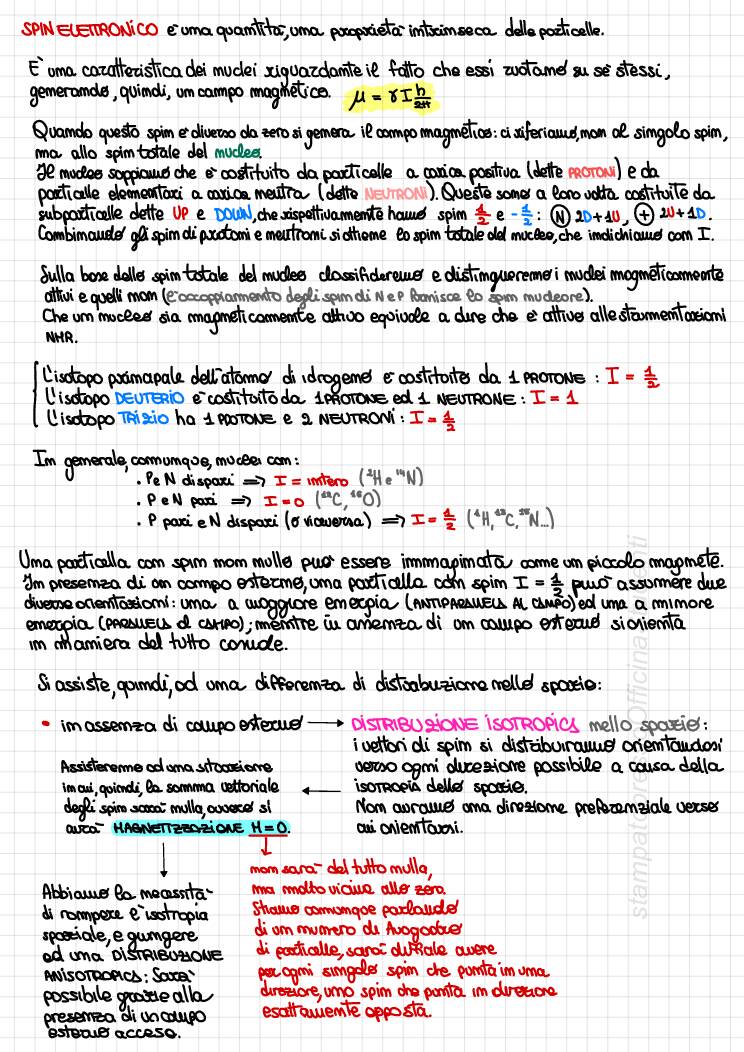 SPIN ELETTRONICO è una quantità, una proprietà intrinseca delle particelle.
E' una caratteristica dei nuclei riguardante il fatto che essi ruotano su se stessi,
generando, quindi, un campo magnetico. μ = γ I h/2π
Quando questo spin è diverso da zero si genera il campo magnetico: ci riferiamo, non al singolo spin,
ma allo spin totale del nucleo.
Il nucleo sappiamo che è costituito da particelle a carica positiva (dette PROTONI) e da
particelle elementari a carica neutra (dette NEUTRONI). Queste sono a loro volta costituite da
subparticelle dette UP e DOWN, che rispettivamente hanno spin 1/2 e -1/2 : (N) 2D+1U, (+) 2U+1D.
Combinando gli spin di protoni e neutroni si ottiene lo spin totale del nucleo, che indichiamo con I.
Sulla base dello spin totale del nucleo classificheremo e distingueremo i nuclei magneticamente
attivi e quelli non (l'accoppiamento degli spin di N e P fornisce lo spin nucleare).
Che un nucleo sia magneticamente attivo equivale a dire che è attivo alle strumentazioni
NMR.
L'isotopo principale dell'atomo di idrogeno è costituito da 1 PROTONE : I = 1/2
L'isotopo DEUTERIO è costituito da 1 PROTONE ed 1 NEUTRONE : I = 1
L'isotopo TRIZIO ha 1 PROTONE e 2 NEUTRONI : I = 1/2
In generale, comunque, nuclei con:
. P e N dispari => I = intero (²H e ¹⁴N)
. P e N pari => I = 0 (¹²C, ¹⁶O)
. P pari e N dispari (o viceversa) => I = 1/2 (¹H, ¹³C, ¹⁵N...)
Una particella con spin non nullo può essere immaginata come un piccolo magnete.
In presenza di un campo esterno, una particella con spin I = 1/2 può assumere due
diverse orientazioni: una a maggiore energia (ANTIPARALLELA AL CAMPO) ed una a minore
energia (PARALLELA al CAMPO); mentre in assenza di un campo esterno si orienta
in maniera del tutto casuale.
Si assiste, quindi, ad una differenza di distribuzione nello spazio:
• in assenza di campo esterno → DISTRIBUZIONE ISOTROPICA nello spazio:
i vettori di spin si distribuiranno orientandosi
verso ogni direzione possibile a causa della
isotropia dello spazio.
Non avranno una direzione preferenziale verso
cui orientarsi.
Assisteremo ad una situazione
in cui, quindi, la somma vettoriale
degli spin sarà nulla, ovvero si
avrà MAGNETIZZAZIONE M = 0.
non sarà del tutto nulla,
ma molto vicina allo zero.
Stiamo comunque parlando
di un numero di Avogadro
di particelle, sarà difficile avere
per ogni singolo spin che punta in una
direzione, uno spin che punta in direzione
esattamente opposta.
Abbiamo la necessità
di rompere l'isotropia
spaziale, e giungere
ad una DISTRIBUZIONE
ANISOTROPICA: Sarà
possibile grazie alla
presenza di un campo
esterno acceso.